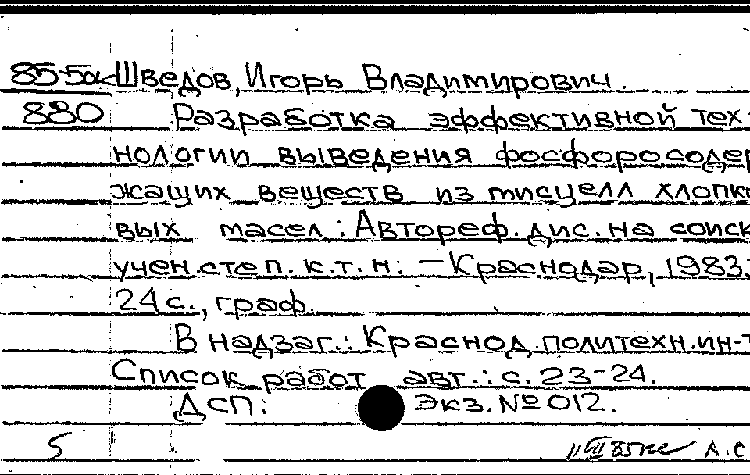 85-5ак Шведов, Игорь Владимирович.
880 Разработка эффективной тех-
нологии выведения фосфоросодер
жащих веществ из мисцелл хлопко
вых масел: Автореф. дис. на соиск
учен. степ. к.т.н. — Краснодар, 1983.
24 с., граф.
В надзаг.: Краснод. политехн. ин-т
Список работ авт.: с. 23-24.
ДСП: Экз. № 012.
5 А.С